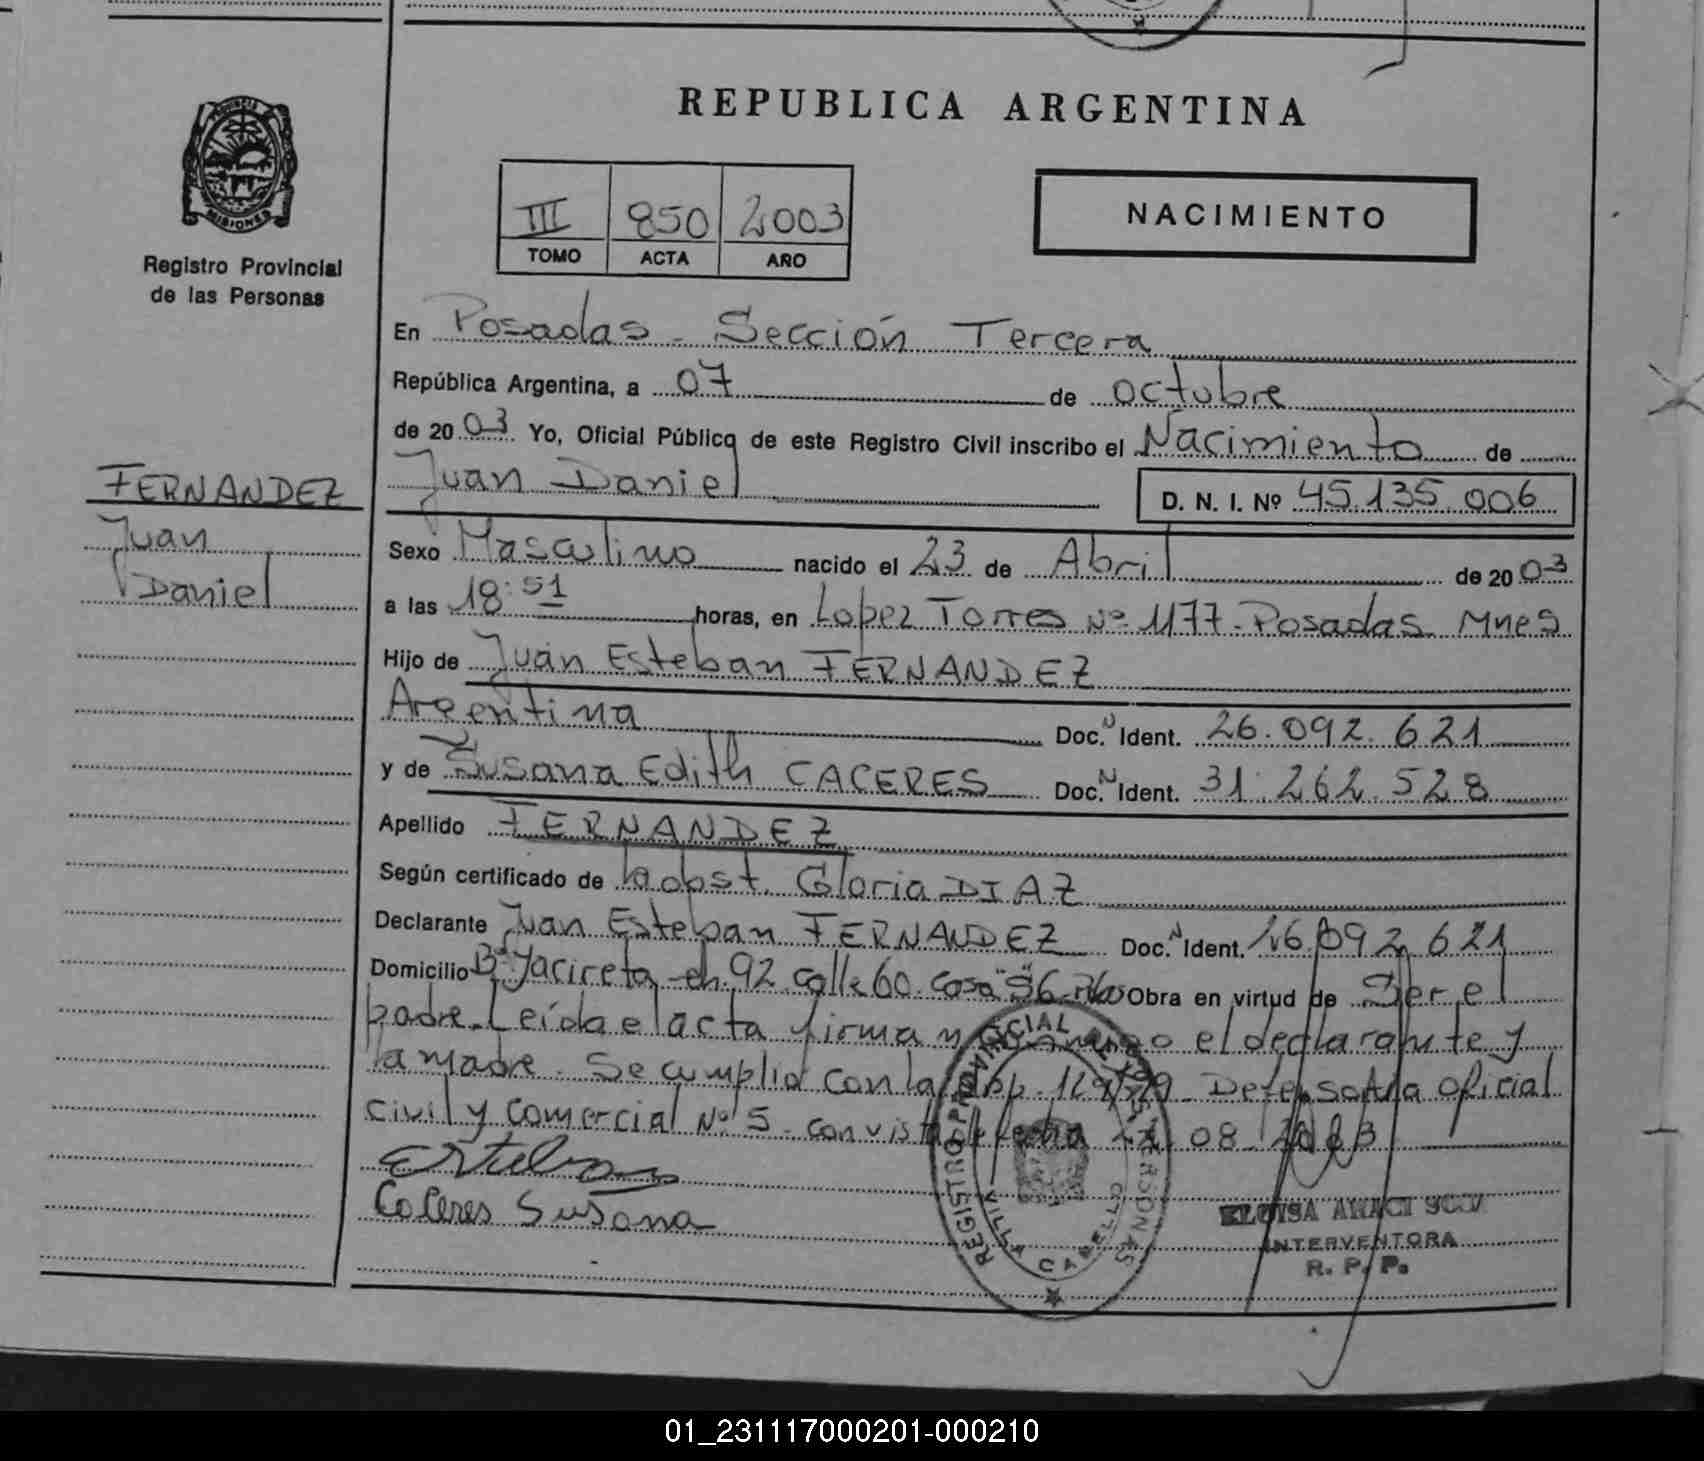 REPUBLICA ARGENTINA
PROVINCIA
MISIONES
Registro Provincial
de las Personas
III 850 2003
TOMO ACTA AÑO
NACIMIENTO
En Posadas - Sección Tercera
República Argentina, a 07 de octubre
de 2003 Yo, Oficial Público de este Registro Civil inscribo el Nacimiento de
Juan Daniel D. N. I. Nº 45.135.006
FERNANDEZ
Juan
Daniel
Sexo Masculino nacido el 23 de Abril de 2003
a las 18:51 horas, en Lopez Torres Nº 1177 - Posadas Mnes
Hijo de Juan Esteban FERNANDEZ
Argentina Doc. N Ident. 26.092.621
y de Susana Edith CACERES Doc. N Ident. 31.262.528
Apellido FERNANDEZ
Según certificado de la obst. Gloria DIAZ
Declarante Juan Esteban FERNANDEZ Doc. N Ident. 26.092.621
Domicilio Bº Yacireta ch. 92 calle 60 casa 56 Obra en virtud de Ser el
padre. Leída el acta firma el declarante y
la madre. Se cumplió con la Defensoría oficial
civil y comercial Nº 5 - con vista 08
Caceres Susana
REGISTRO PROVINCIAL PERSONAS
VILLA CABELLO
ELOISA
INTERVENTORA
R. P. P.
01_231117000201-000210